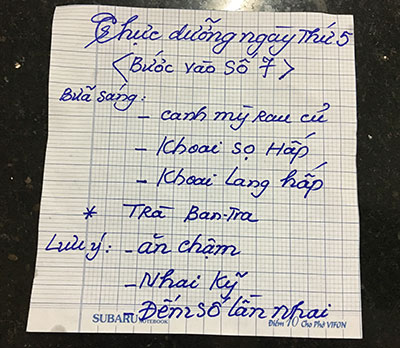 Thực dưỡng ngày Thứ 5
<Bước vào Số 7>
Bữa sáng:
- canh mỳ rau củ
- Khoai sọ Hấp
- Khoai lang hấp
* Trà Ban-Tra
Lưu ý: - ăn chậm
- Nhai Kỹ
- Đếm số lần nhai
SUBARU NOTEBOOK Điểm 10 Cho Phở VIFON